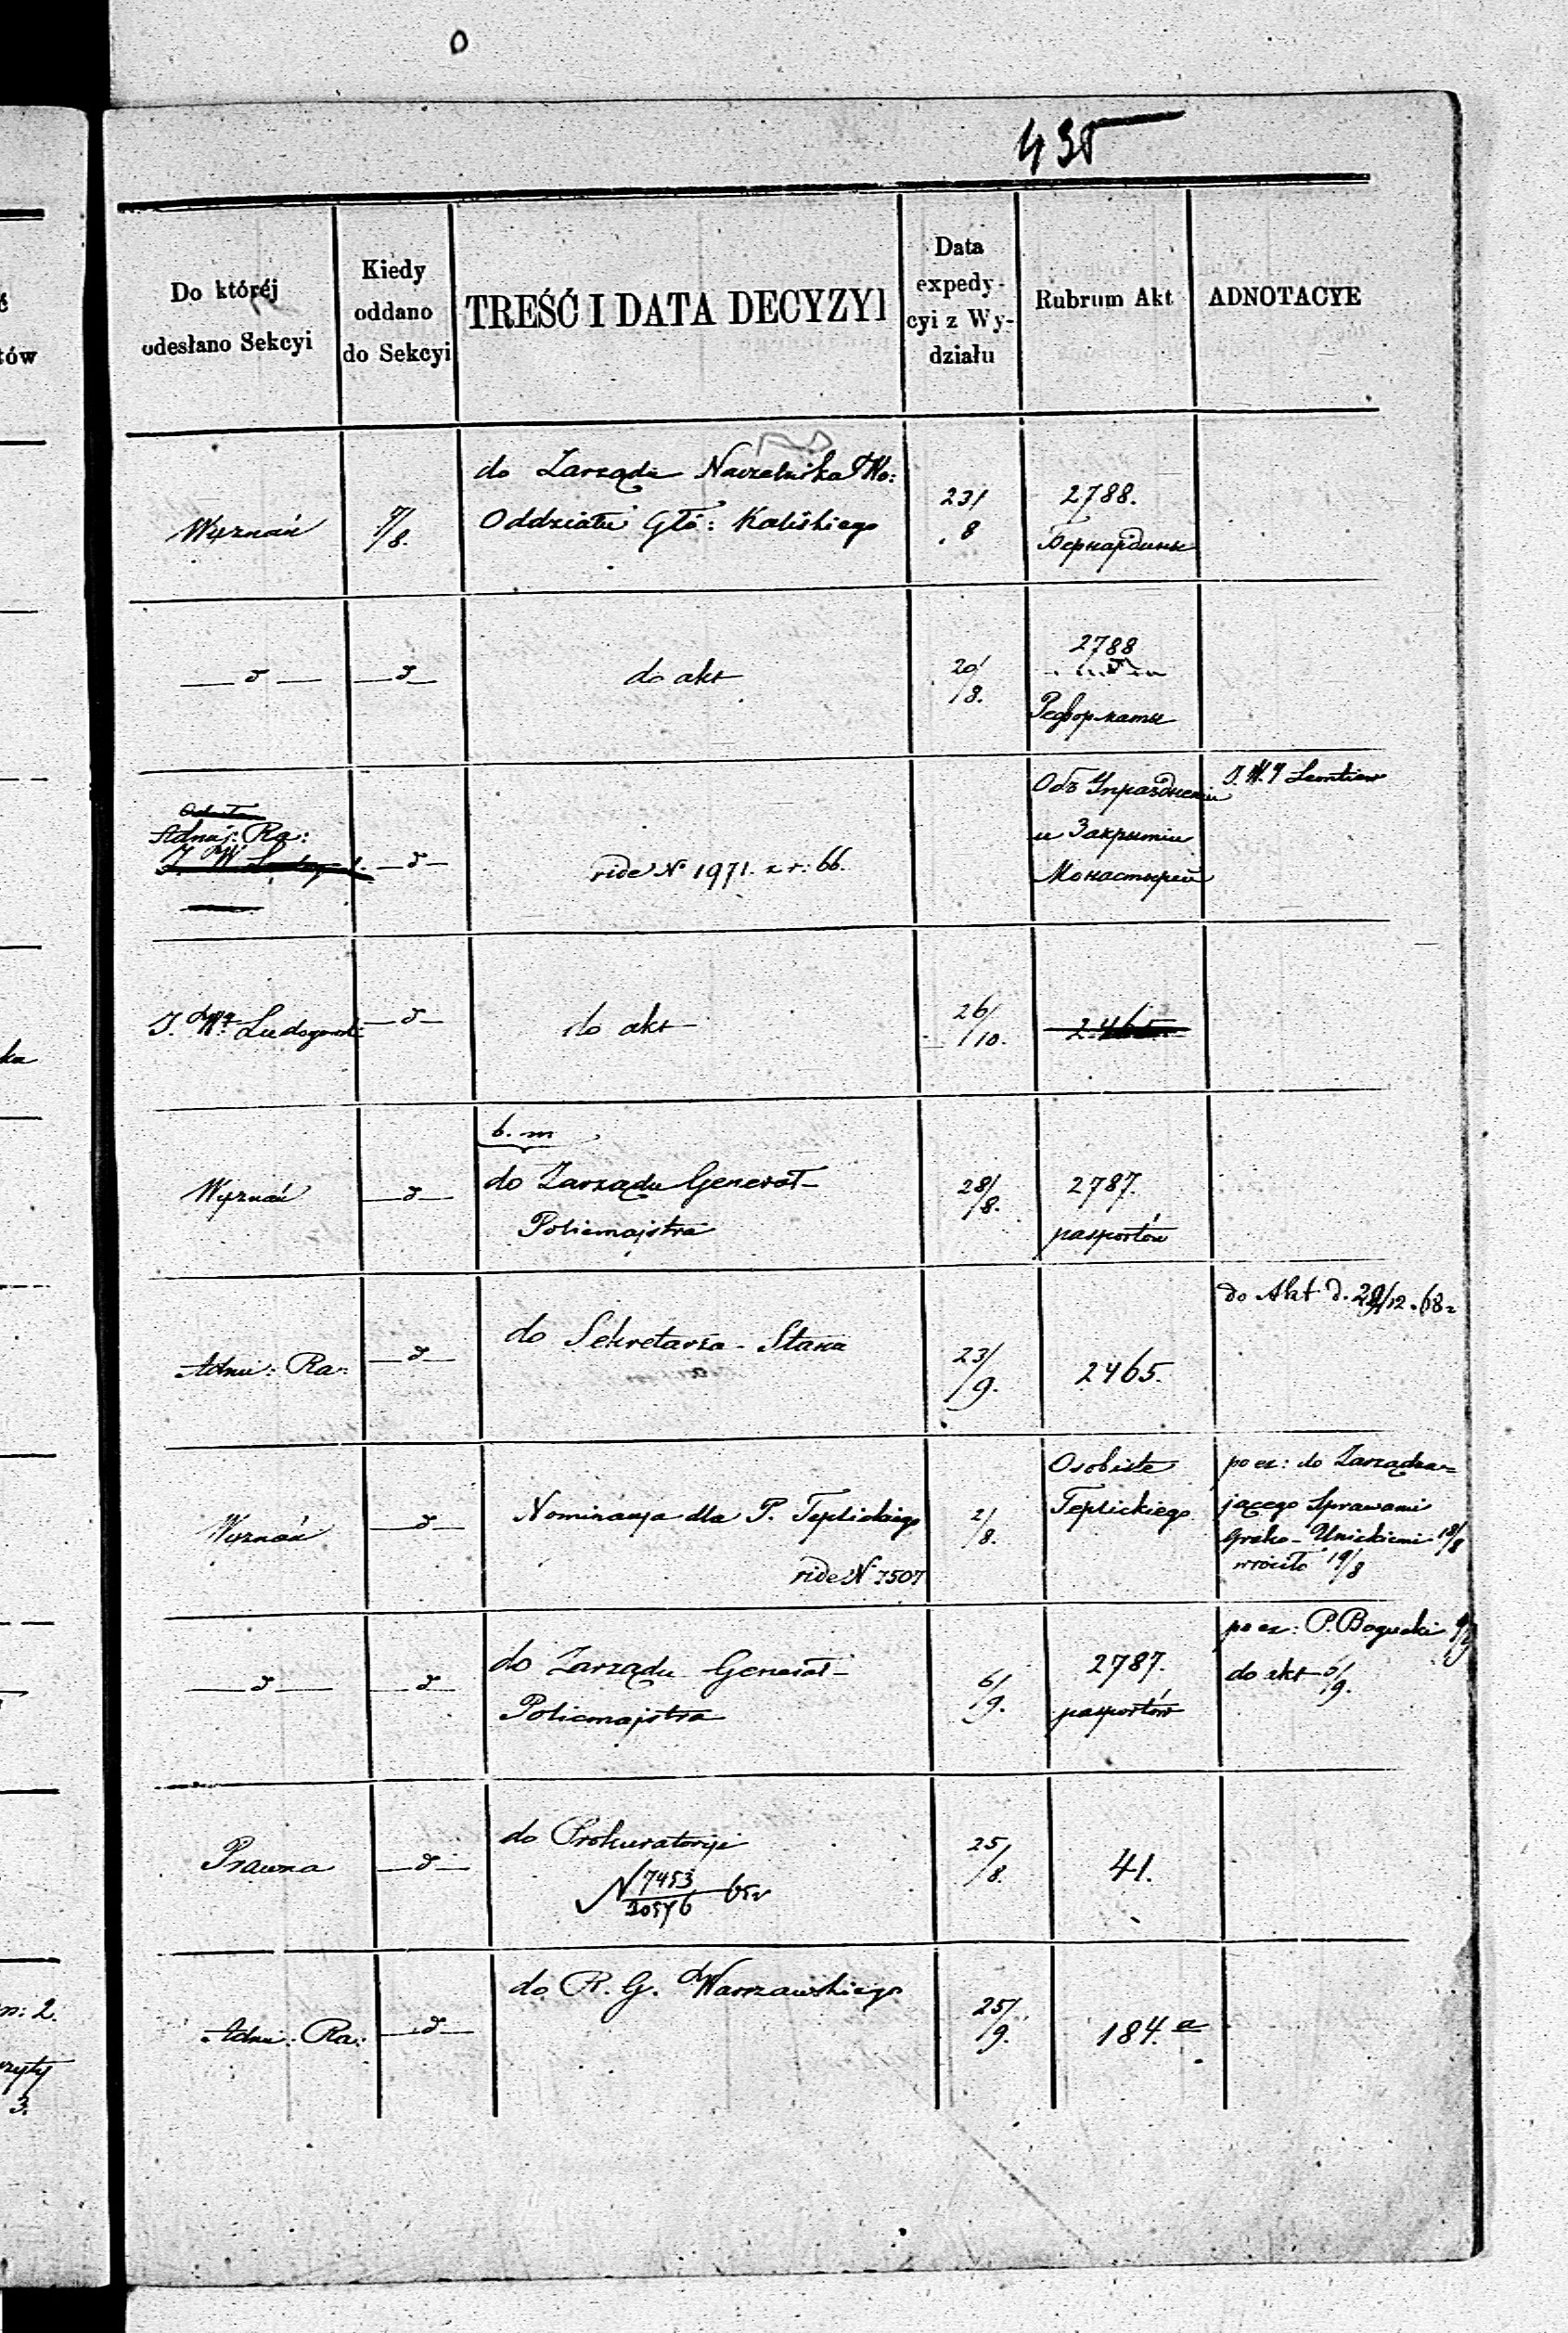 435
Do któréj
odesłano Sekcyi
Kiedy
oddano
do Sekcyi
TREŚĆ I DATA DECYZYI
Data
expedy-
cyi z Wy-
działu
Rubrum Akt
ADNOTACYE
Wyznań
7/8.
do Zarządu Naczelnika
Oddziału Głó: Kaliskiego
23/8
2788.
Бернардины
— d —
— d —
do akt
20/8.
2788
Реформаты
Adm: Ra:
— d —
vide No 1971. z r. 66.
Объ Упразднении
и Закрытии
Монастырей
J. W. J Leontiew
J. W. Ludogowski
— d —
do akt
26/10.
2465.
Wyznań
— d —
b. m
do Zarządu Generał-
Policmajstra
28/8.
2787.
pasportów
Adm: Ra:
— d —
do Sekretarza - Stanu
23/9.
2465.
do Akt d. 29/12. 68
Wyznań
— d —
Nominacya dla P. Teplickiego
vide N 7507
2/8.
Osobiste
Teplickiego
po ex: do Zarządza=
jącego Sprawami
Greko-Unickiemi 18/8
wróciło 19/8
— d —
— d —
do Zarządu Generał-
Policmajstra
6/9.
2787.
pasportów
po ex: P. Bogucki
do akt 6/9.
Prawna
— d —
do Prokuratoryi
N 7453/
25/8.
41.
Adm: Ra:
— d —
do R. G. Warszawskiego
25/9.
184. a